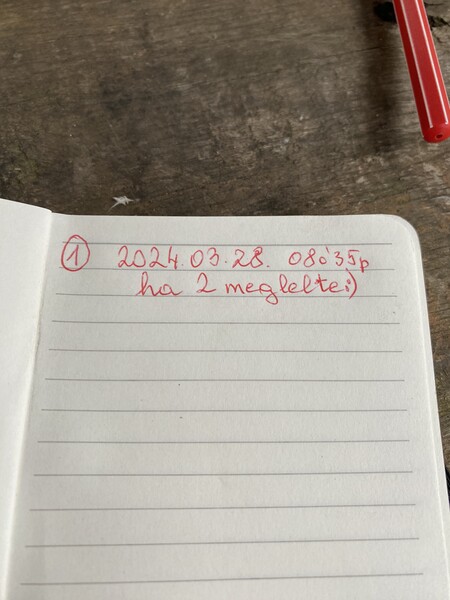 ① 2024.03.28. 08ó35p
ha 2 meglelte:)